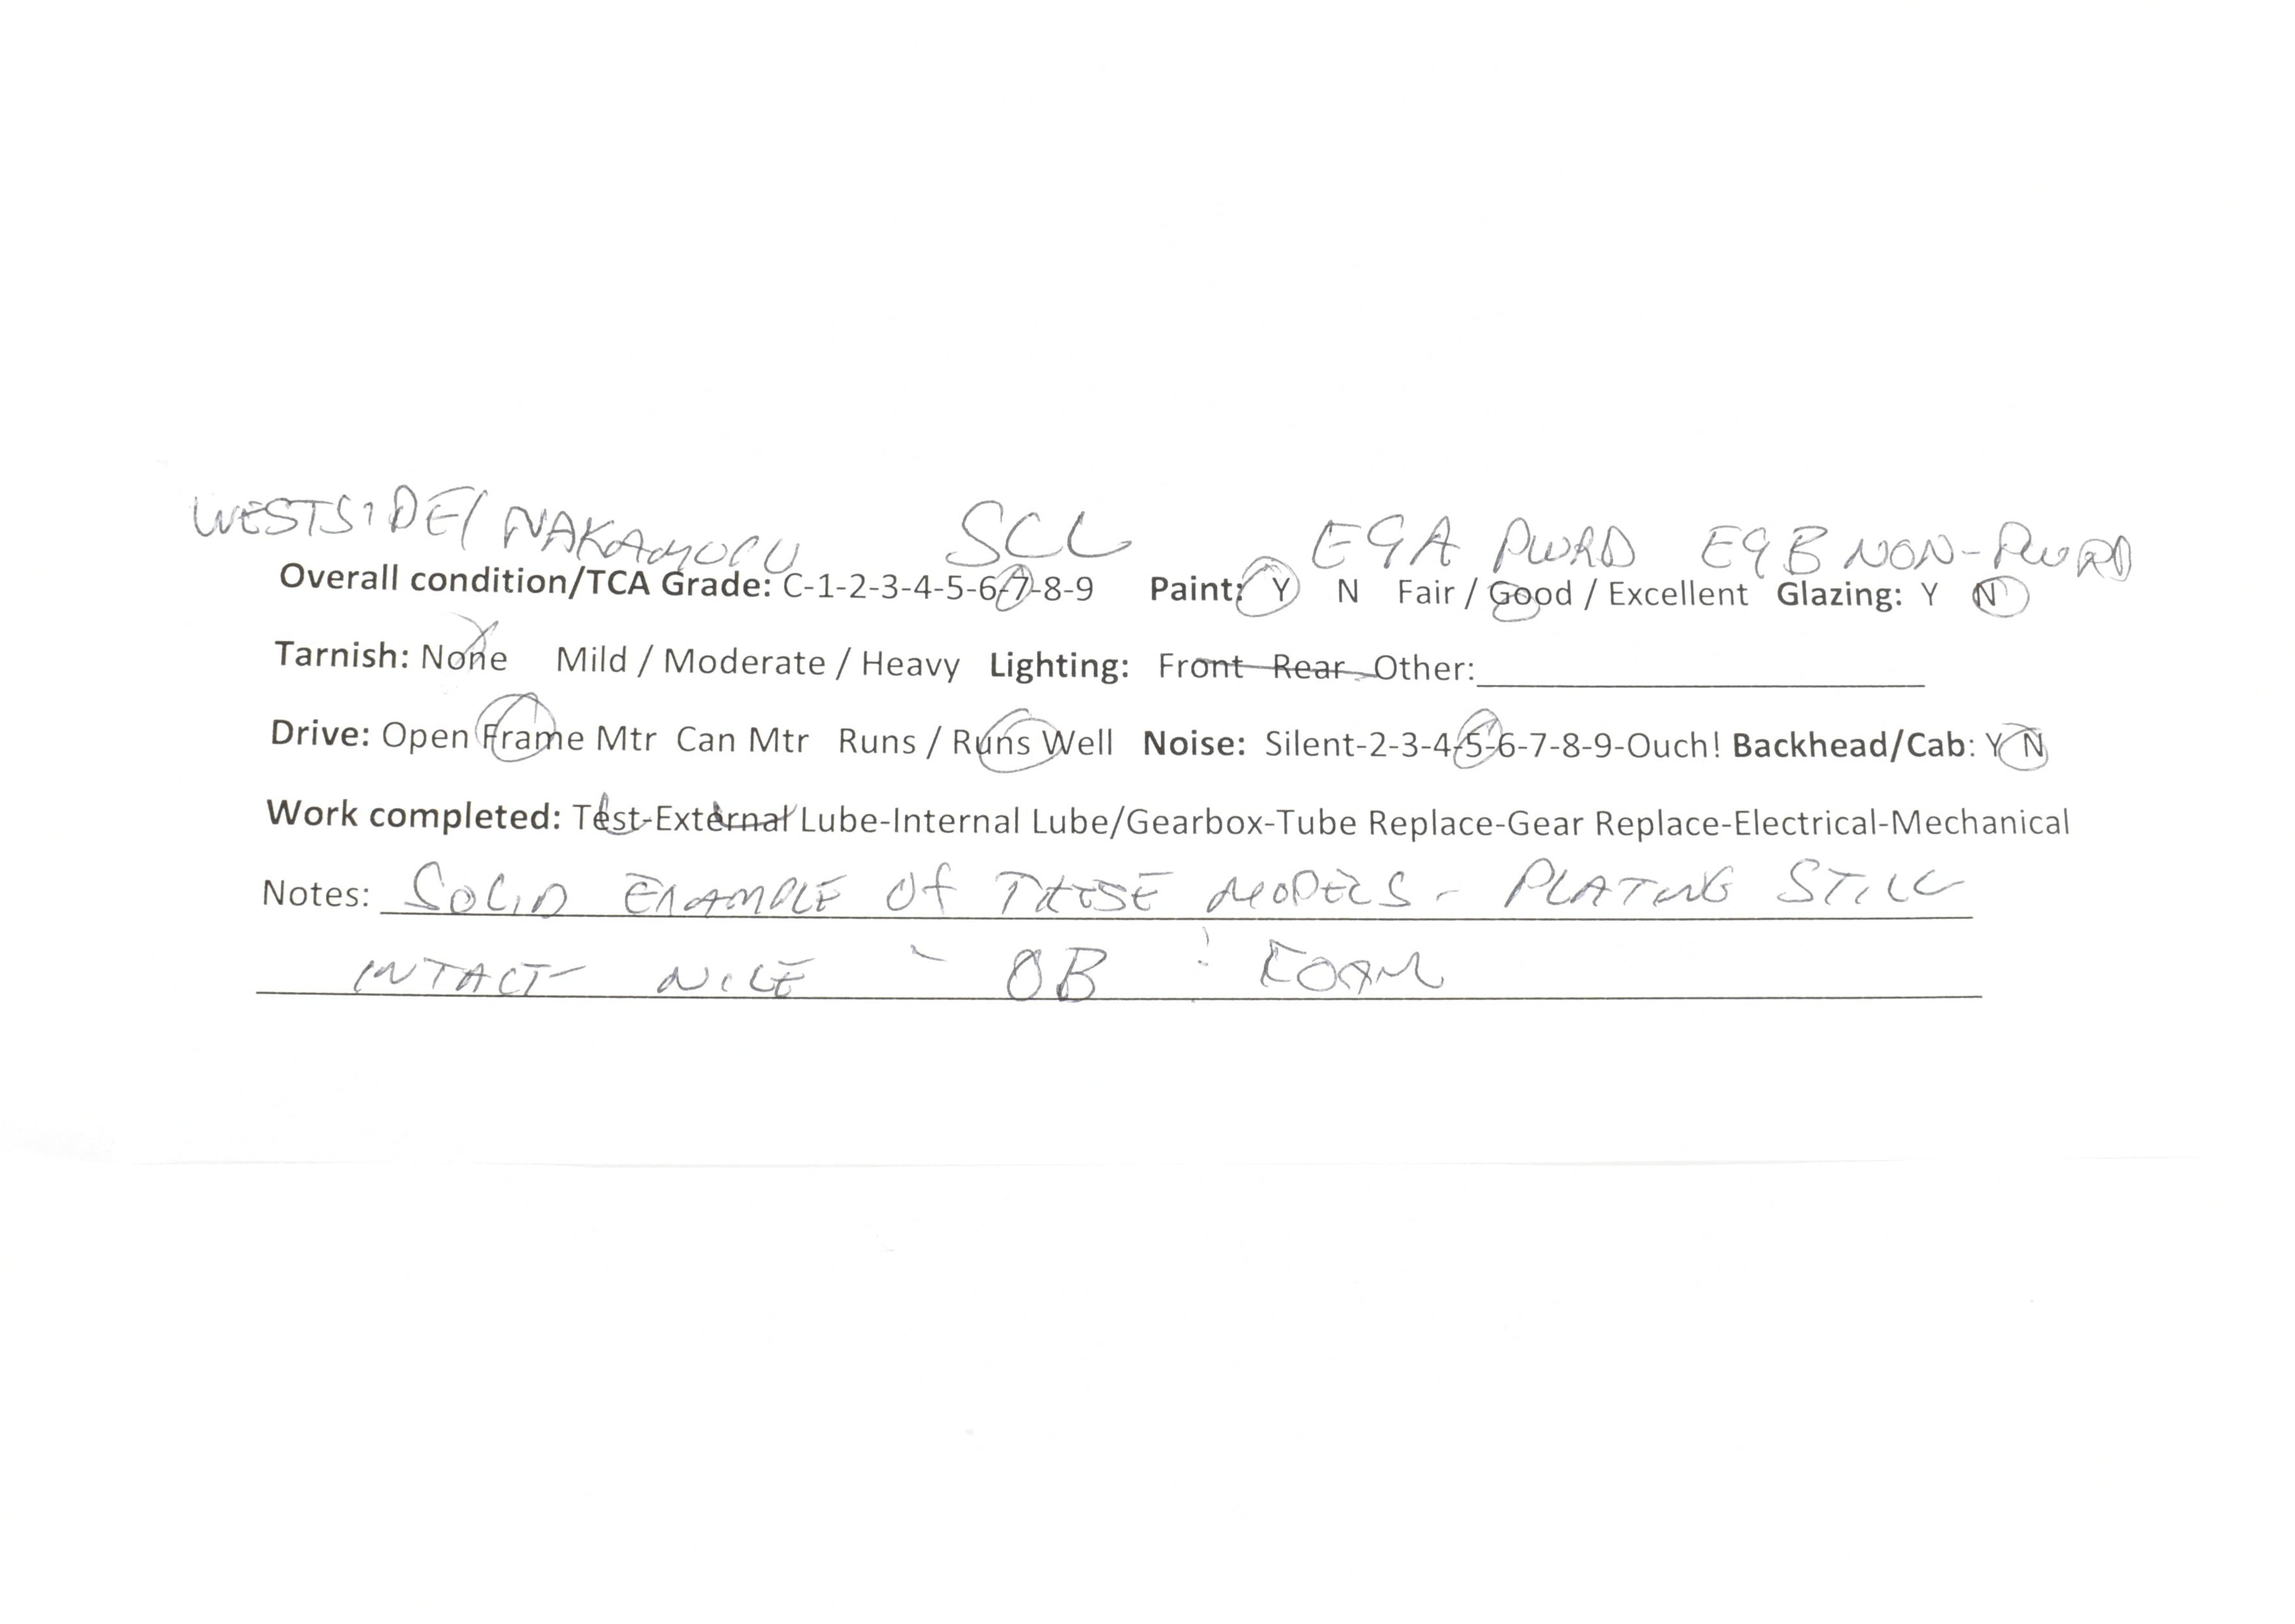 WESTSIDE/ NAKAMURA SCL E9A PWRD E9B NON-PWRD
Overall condition/TCA Grade: C-1-2-3-4-5-6-7-8-9 Paint: Y N Fair / Good / Excellent Glazing: Y N
Tarnish: None Mild / Moderate / Heavy Lighting: Front Rear Other:
Drive: Open Frame Mtr Can Mtr Runs / Runs Well Noise: Silent-2-3-4-5-6-7-8-9-Ouch! Backhead/Cab: Y N
Work completed: Test-External Lube-Internal Lube/Gearbox-Tube Replace-Gear Replace-Electrical-Mechanical
Notes: SOLID EXAMPLE OF THESE MODELS - PLATING STILL
INTACT - NICE - OB : FOAM